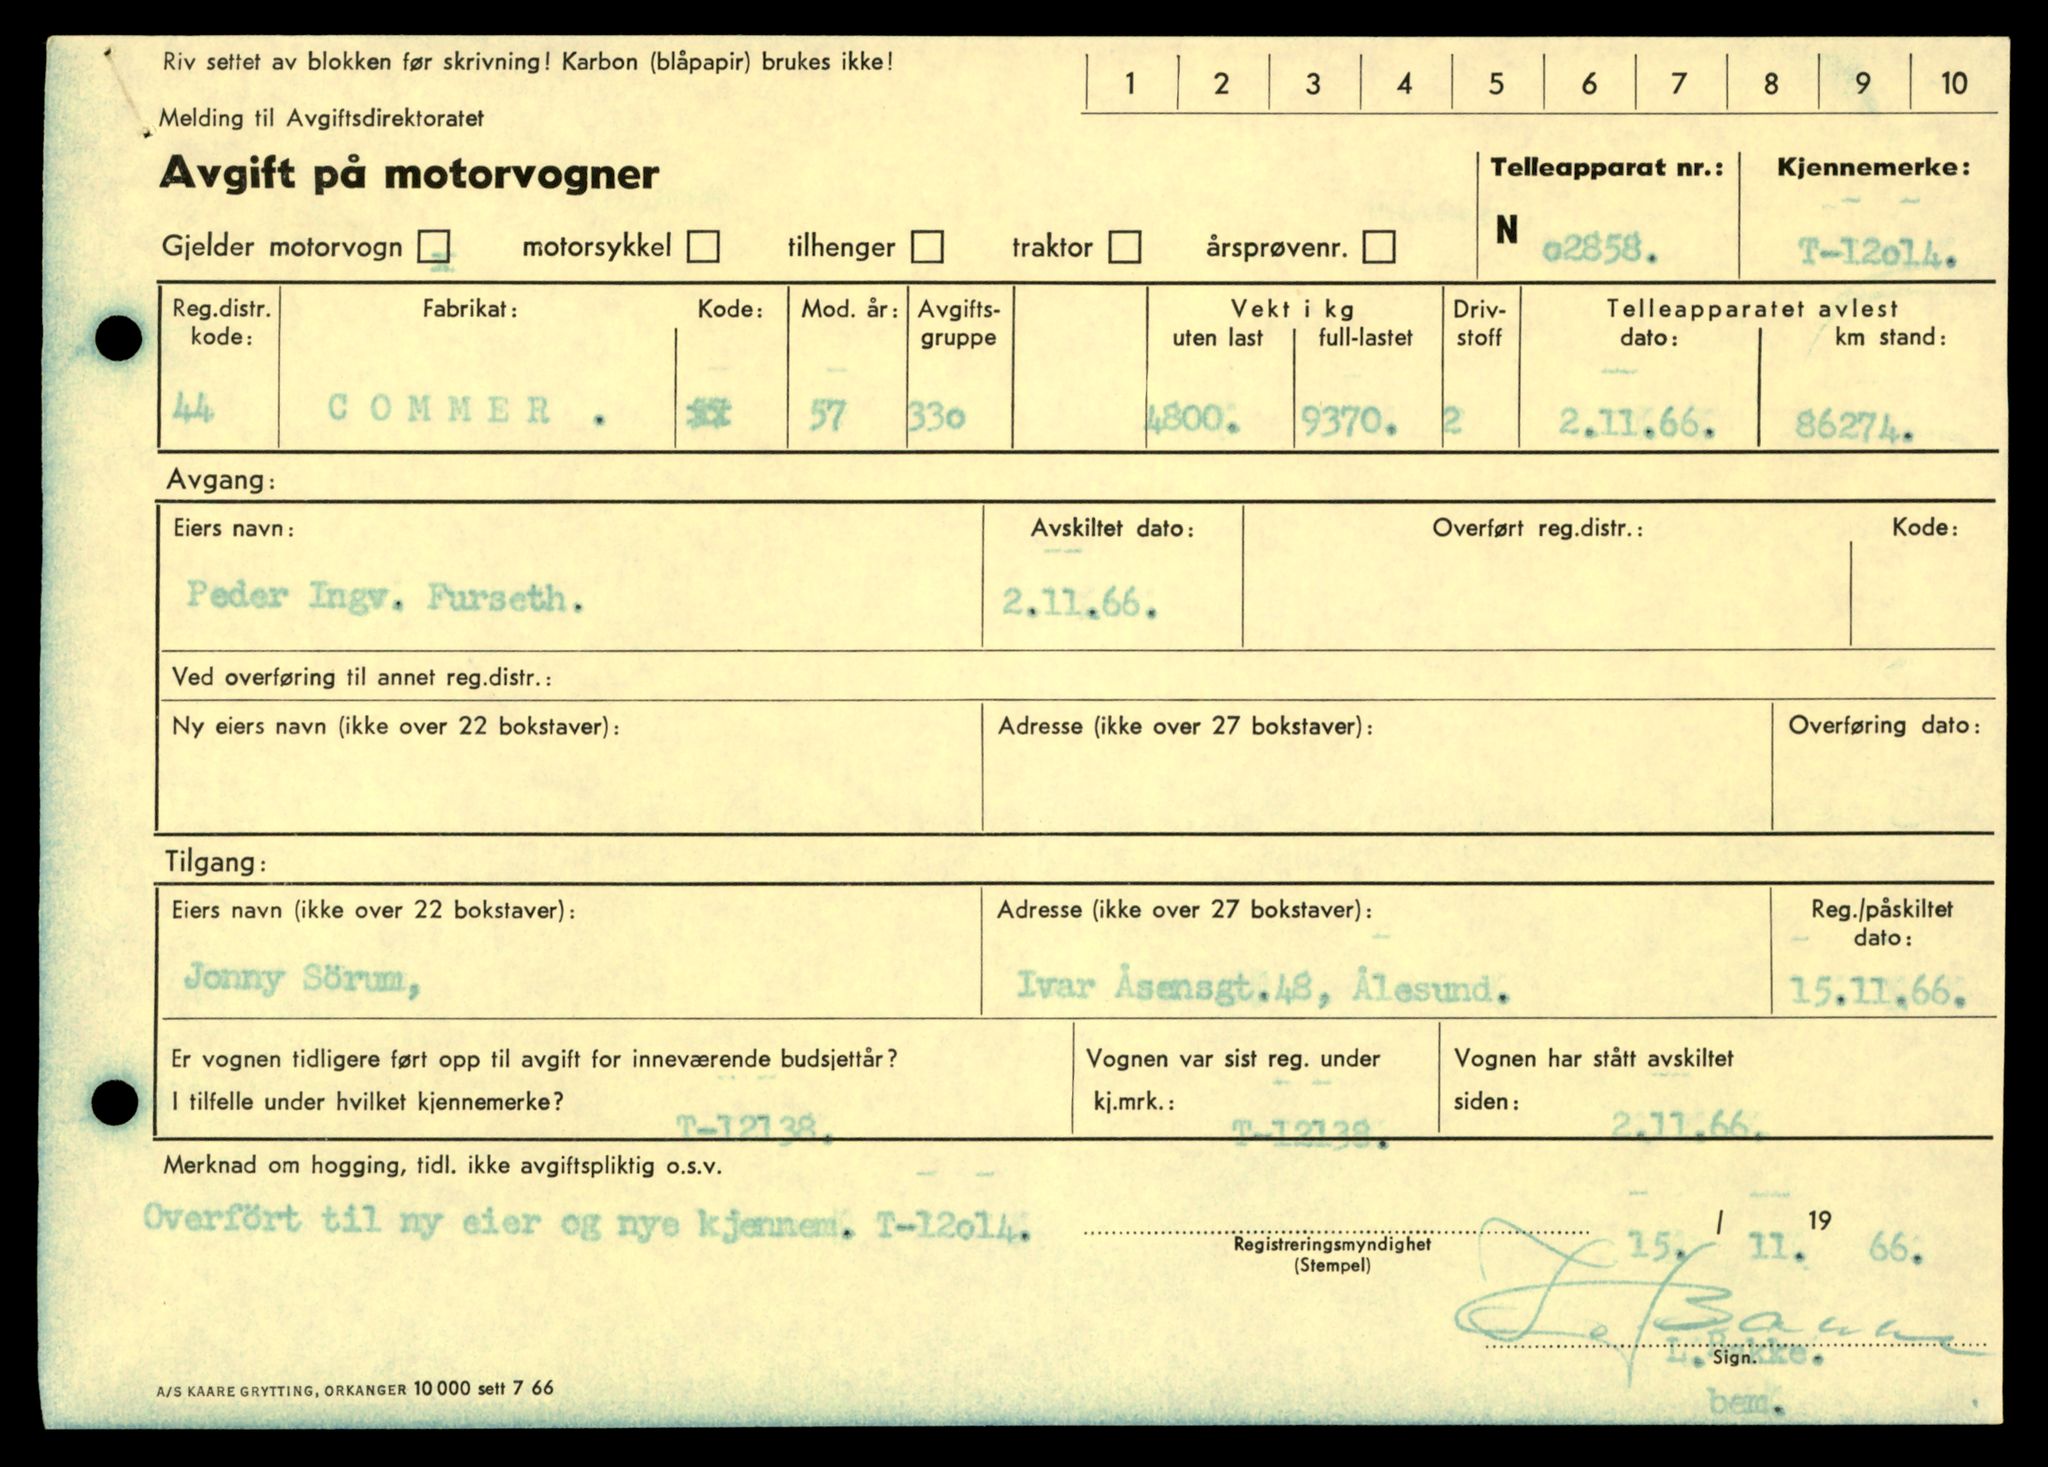 Riv settet av blokken før skrivning! Karbon (blåpapir) brukes ikke!
1 2 3 4 5 6 7 8 9 10
Melding til Avgiftsdirektoratet
Avgift på motorvogner
Telleapparat nr.: Kjennemerke:
N o2858. T-12o14.
Gjelder motorvogn x motorsykkel tilhenger traktor årsprøvenr.
Reg.distr. kode: Fabrikat: Kode: Mod. år: Avgifts- gruppe Vekt i kg uten last full-lastet Driv- stoff Telleapparatet avlest dato: km stand:
44 COMMER . 57 33o 4800. 9370. 2 2.11.66. 86274.
Avgang:
Eiers navn: Avskiltet dato: Overført reg.distr.: Kode:
Peder Ingv. Furseth. 2.11.66.
Ved overføring til annet reg.distr.:
Ny eiers navn (ikke over 22 bokstaver): Adresse (ikke over 27 bokstaver): Overføring dato:
Tilgang:
Eiers navn (ikke over 22 bokstaver): Adresse (ikke over 27 bokstaver): Reg./påskiltet dato:
Jonny Sörum, Ivar Åsensgt.48, Ålesund. 15.11.66.
Er vognen tidligere ført opp til avgift for inneværende budsjettår? Vognen var sist reg. under Vognen har stått avskiltet
I tilfelle under hvilket kjennemerke? T-12138. kj.mrk.: T-12138. siden: 2.11.66.
Merknad om hogging, tidl. ikke avgiftspliktig o.s.v.
Overfört til ny eier og nye kjennem. T-12o14.
15. / 11. 19 66.
Registreringsmyndighet
(Stempel)
L.Bakke.
Sign.
bem.
A/S KAARE GRYTTING, ORKANGER 10 000 sett 7 66